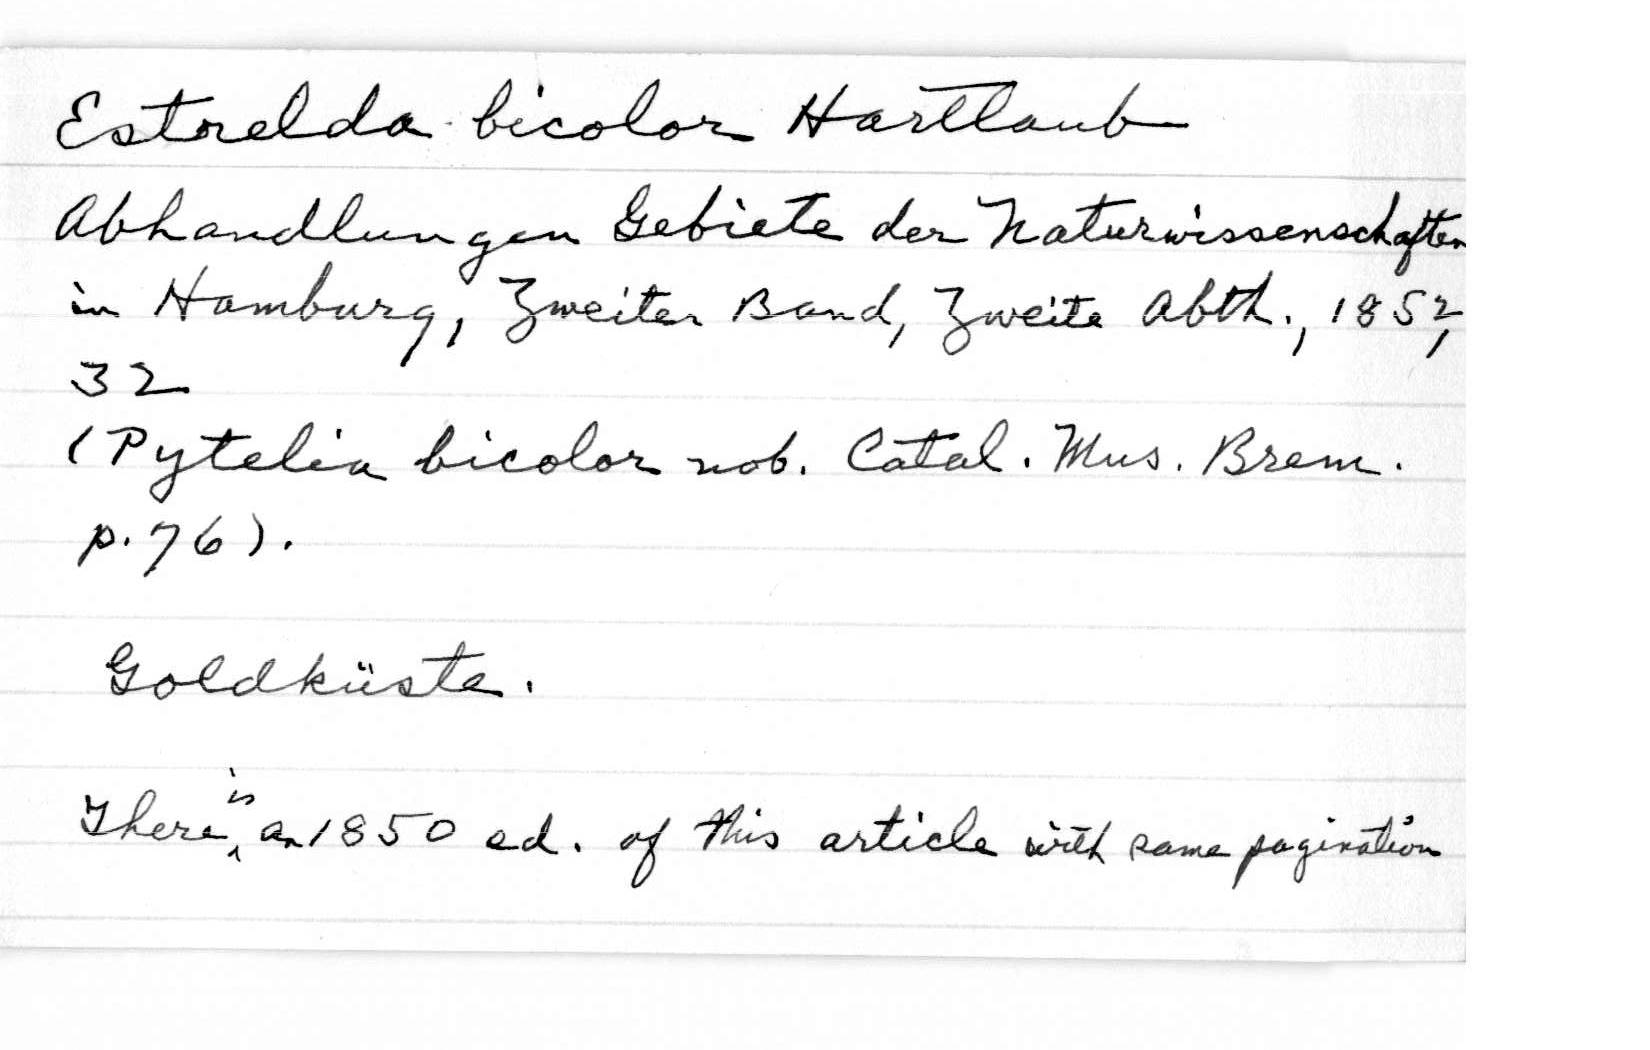 Estrelda bicolor Hartlaub
Abhandlungen Gebiete der Naturwissenschaften
in Hamburg, Zweiter Band, Zweite Abth., 1852,
32
(Pytelia bicolor nob. Catal. Mus. Brem.
p. 76).
Goldküste.
There is an 1850 ed. of this article with same pagination